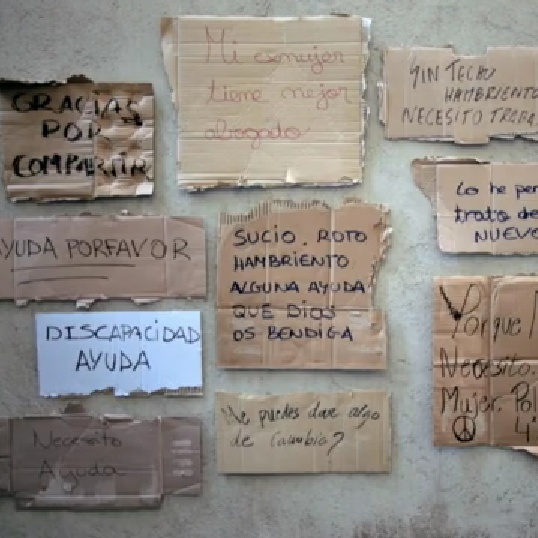 GRACIAS
POR
COMPARTIR
Mi exmujer
tiene mejor
abogado
SIN TECHO
HAMBRIENTO
NECESITO TRABA
Lo he per
trato de
NUEVO
AYUDA PORFAVOR
SUCIO. ROTO
HAMBRIENTO
ALGUNA AYUDA
QUE DIOS
OS BENDIGA
DISCAPACIDAD
AYUDA
Porque
Necesito.
Mujer. Pol
4
Necesito
Ayuda
Me puedes dar algo
de Cambio?